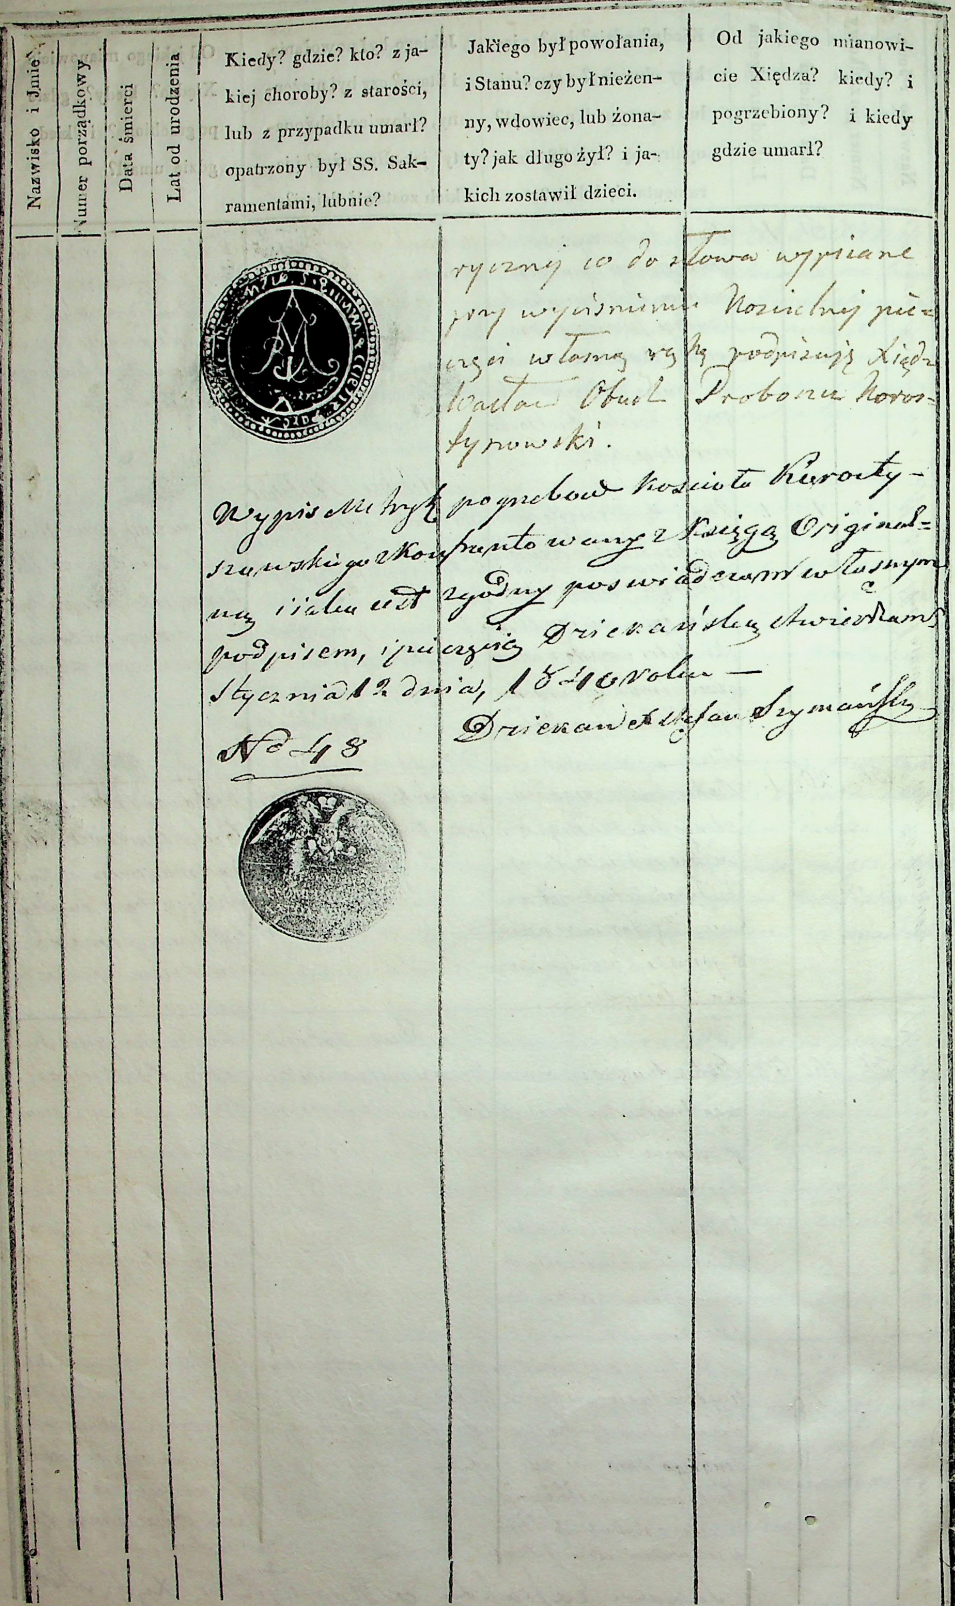 Nazwisko i Jmie.
Numer porządkowy.
Data śmierci
Lat od urodzenia
Kiedy? gdzie? kto? z ja-
kiej choroby? z starości,
lub z przypadku umarł?
opatrzony był SS. Sak-
ramentami, lubnie?
Jakiego był powołania,
i Stanu? czy był nieżen-
ny, wdowiec, lub żona-
ty? jak długo żył? i ja-
kich zostawił dzieci.
Od jakiego mianowi-
cie Xiędza? kiedy? i
pogrzebiony? i kiedy
gdzie umarł?
rycznej co do słowa wypisane
przy wyciśnieniu Kościelnej pie=
częci własną ręką podpisuję Xiądz
Wacław Obuch Proboszcz Koros-
tyszowski.
Wypis Metryk pogrzebow Kościoła Korosty-
szowskiego zkonfrontowany z Księgą Original=
ną i iako iest zgodny poswiadczam własnym
podpisem, i pieczęcią Dziekańską stwierdzam
Stycznia 12 dnia, 1840 roku —
Dziekan X Stefan Szymański
No 48